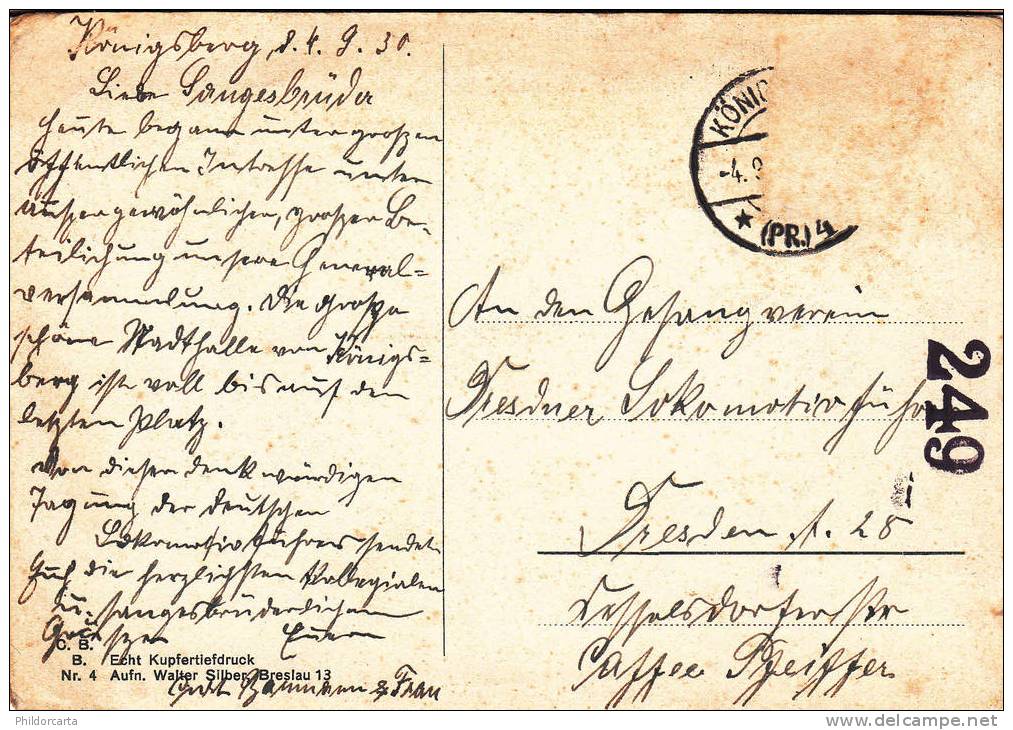 Königsberg, d. 4. 9. 30.
Liebe Sangesbrüder
Heute begann unter grossen
öffentlichen Interesse unter
aussergewöhnlichen, grosser Be-
teilichung unsere General=
versammlung. Die grosse
schöne Stadthalle von Königs=
berg ist voll bis auf den
letzten Platz.
Von dieser denkwürdigen
Tagung der deutschen
Lokomotivführer sendet
Euch die herzlichsten Kollegialen
u. sangesbrüderlichen
Grüsse Euern
Baumann & Frau
C. B.
B. Echt Kupfertiefdruck
Nr. 4 Aufn. Walter Silber, Breslau 13
KÖNIG
-4. 9
(PR.) 4
An den Gesangverein
Dresdner Lokomotivführer
Dresden A. 28
Kesselsdorferstr
Caffee Pfeiffer
249
Phildorcarta
www.delcampe.net